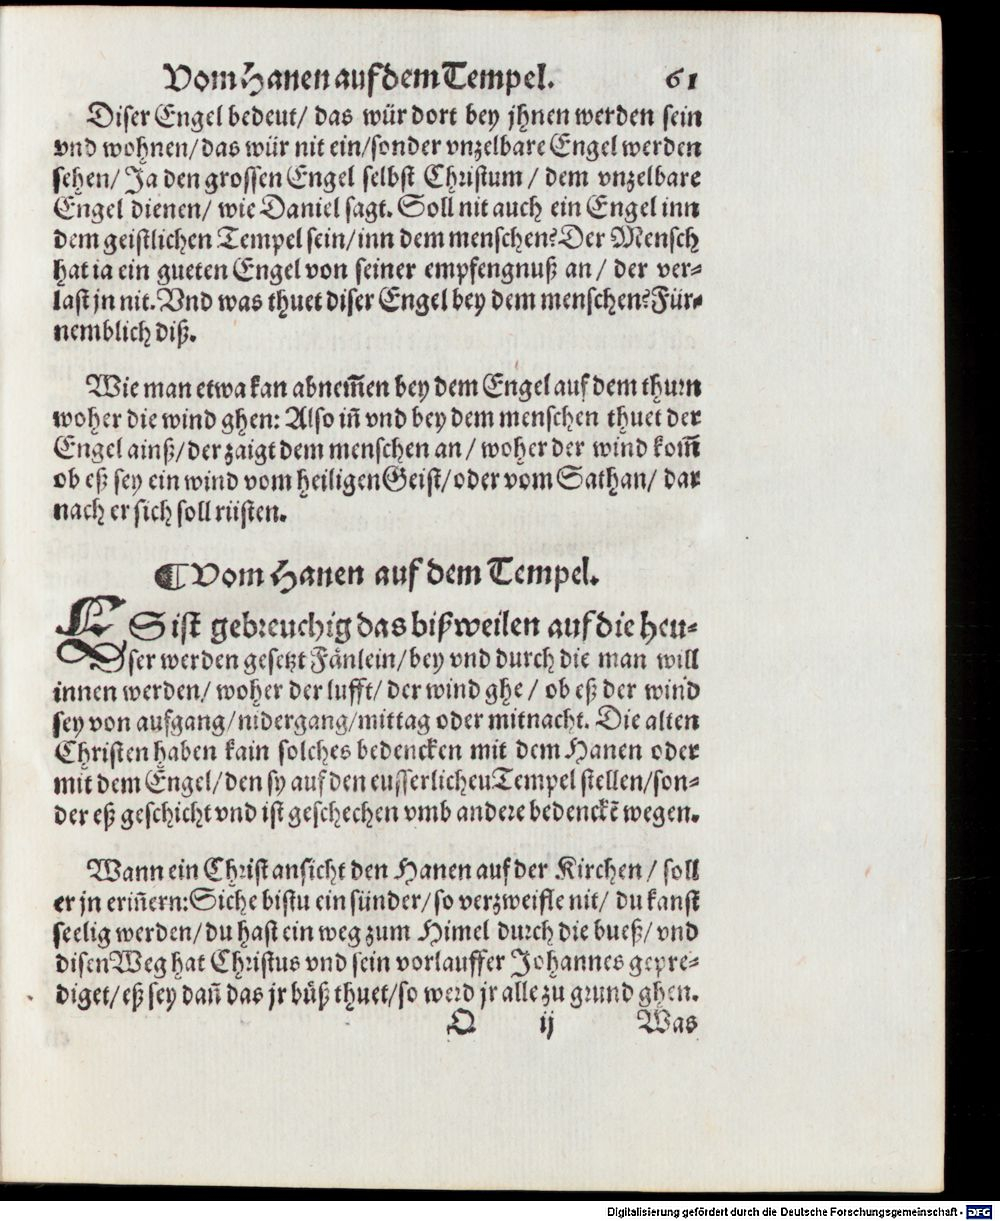 Vom Hanen auf dem Tempel. 61
Diser Engel bedeut/ das wür dort bey jhnen werden sein
vnd wohnen/ das wür nit ein/ sonder vnzelbare Engel werden
sehen/ Ja den grossen Engel selbst Christum / dem vnzelbare
Engel dienen/ wie Daniel sagt. Soll nit auch ein Engel inn
dem geistlichen Tempel sein/ inn dem menschen? Der Mensch
hat ia ein gueten Engel von seiner empfengnuß an / der ver-
last jn nit. Vnd was thuet diser Engel bey dem menschen? Für-
nemblich diß.
Wie man etwa kan abnem̃en bey dem Engel auf dem thurn
woher die wind ghen: Also in̄ vnd bey dem menschen thuet der
Engel ainß/ der zaigt dem menschen an / woher der wind kom̃
ob eß sey ein wind vom heiligen Geist/ oder vom Sathan/ dar
nach er sich soll rüsten.
¶ Vom Hanen auf dem Tempel.
ES ist gebreuchig das bißweilen auf die heu-
ser werden gesetzt Fänlein/ bey vnd durch die man will
innen werden/ woher der lufft/ der wind ghe / ob eß der wind
sey von aufgang/ nidergang/ mittag oder mitnacht. Die alten
Christen haben kain solches bedencken mit dem Hanen oder
mit dem Engel/ den sy auf den eusserlicheu Tempel stellen/ son-
der eß geschicht vnd ist geschechen vmb andere bedenckẽ wegen.
Wann ein Christ ansicht den Hanen auf der Kirchen / soll
er jn erin̄ern: Siche bistu ein sünder/ so verzweifle nit/ du kanst
seelig werden/ du hast ein weg zum Himel durch die bueß/ vnd
disen Weg hat Christus vnd sein vorlauffer Johannes gepre-
diget/ eß sey dan̄ das jr büß thuet/ so werd jr alle zu grund ghen.
Q ij Was
Digitalisierung gefördert durch die Deutsche Forschungsgemeinschaft - DFG